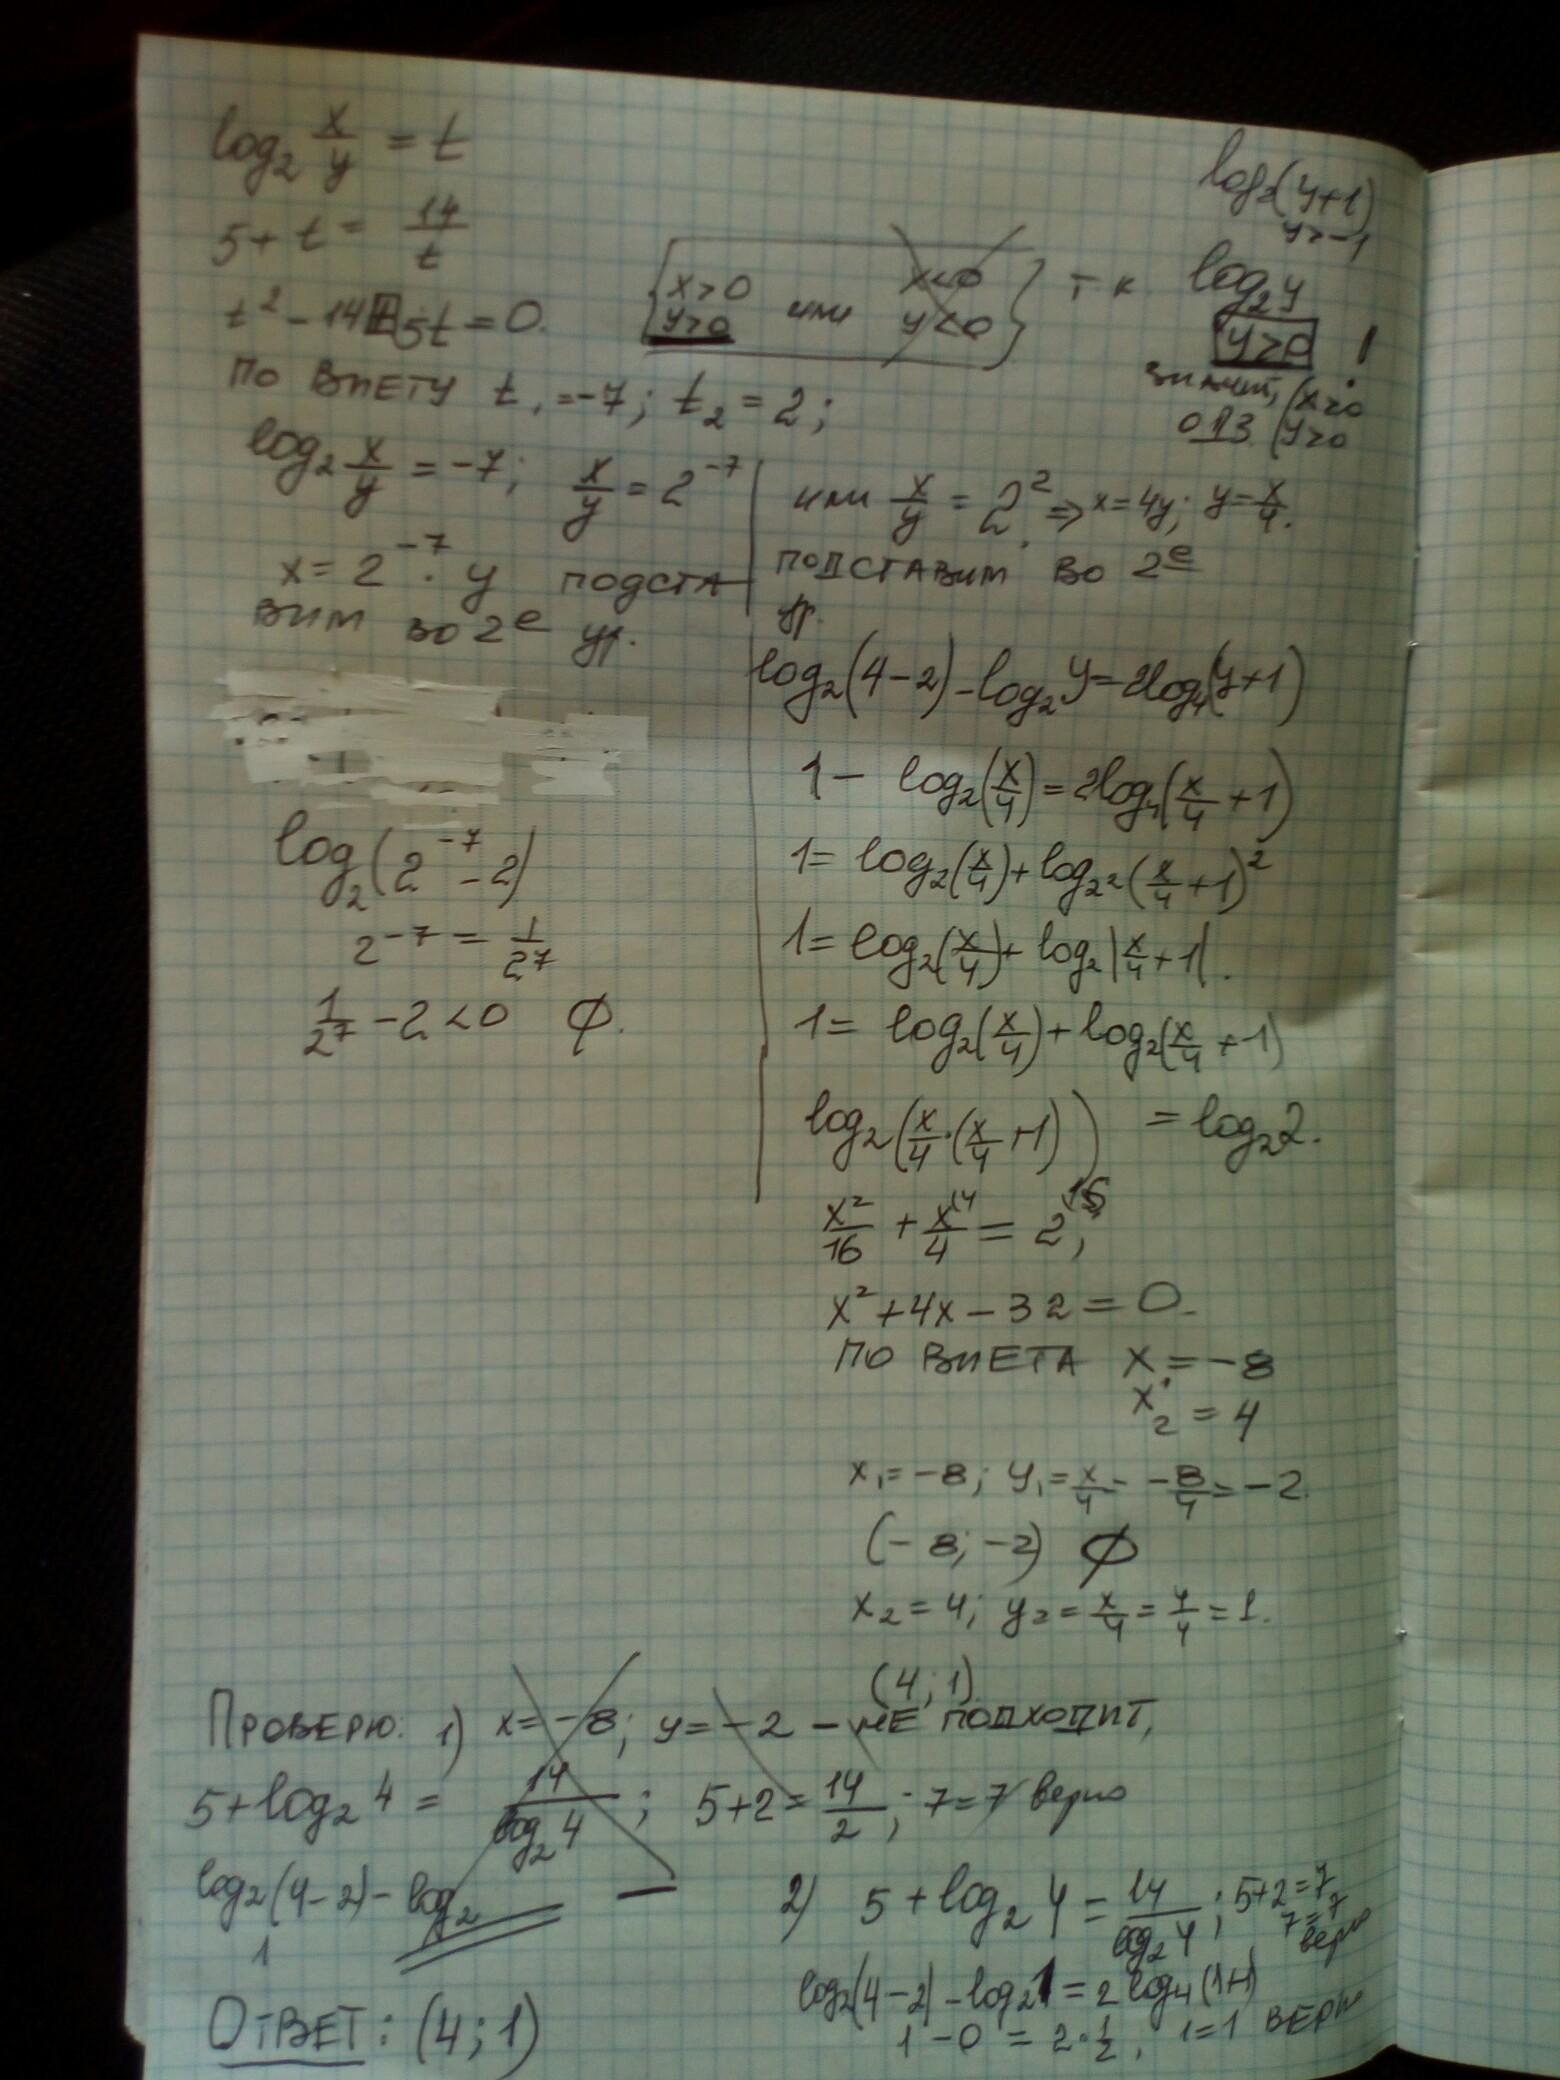 log₂ x/y = t
5 + t = 14/t
t² - 14 + 5t = 0.
{ x>0 y>0 или x<0 y<0 } т к log₂ y
log₂(y+1)
y>-1
y>0 !
значит, { x>0
ОДЗ { y>0
ПО ВИЕТУ t₁ = -7; t₂ = 2;
log₂ x/y = -7; x/y = 2⁻⁷
x = 2⁻⁷ · y ПОДСТА
ВИМ ВО 2е ур.
log₂(2⁻⁷ - 2)
2⁻⁷ = 1/2⁷
1/2⁷ - 2 < 0 ∅.
или x/y = 2² ⇒ x = 4y; y = x/4.
ПОДСТАВИМ ВО 2е
ур.
log₂(4-2) - log₂ y = 2log₄(y+1)
1 - log₂(x/4) = 2log₄(x/4 + 1)
1 = log₂(x/4) + log₂²(x/4 + 1)²
1 = log₂(x/4) + log₂|x/4 + 1|.
1 = log₂(x/4) + log₂(x/4 + 1)
log₂(x/4 · (x/4 + 1)) = log₂2.
x²/16 + x⁽⁴/4 = 2⁽¹⁶;
x² + 4x - 32 = 0.
ПО ВИЕТА x₁ = -8
x₂ = 4
x₁ = -8; y₁ = x/4 = -8/4 = -2.
(-8; -2) ∅
x₂ = 4; y₂ = x/4 = 4/4 = 1.
(4; 1)
ПРОВЕРЮ: 1) x = -8; y = -2 - НЕ ПОДХОДИТ,
5 + log₂ 4 = 14/log₂ 4; 5+2 = 14/2; 7 = 7 верно
log₂(4-2) - log₂ —
1
2) 5 + log₂ 4 = 14/log₂ 4; 5+2=7
7=7
верно
log₂(4-2) - log₂1 = 2 log₄(1+1)
1 - 0 = 2 · 1/2, 1=1 ВЕРНО
ОТВЕТ: (4; 1)